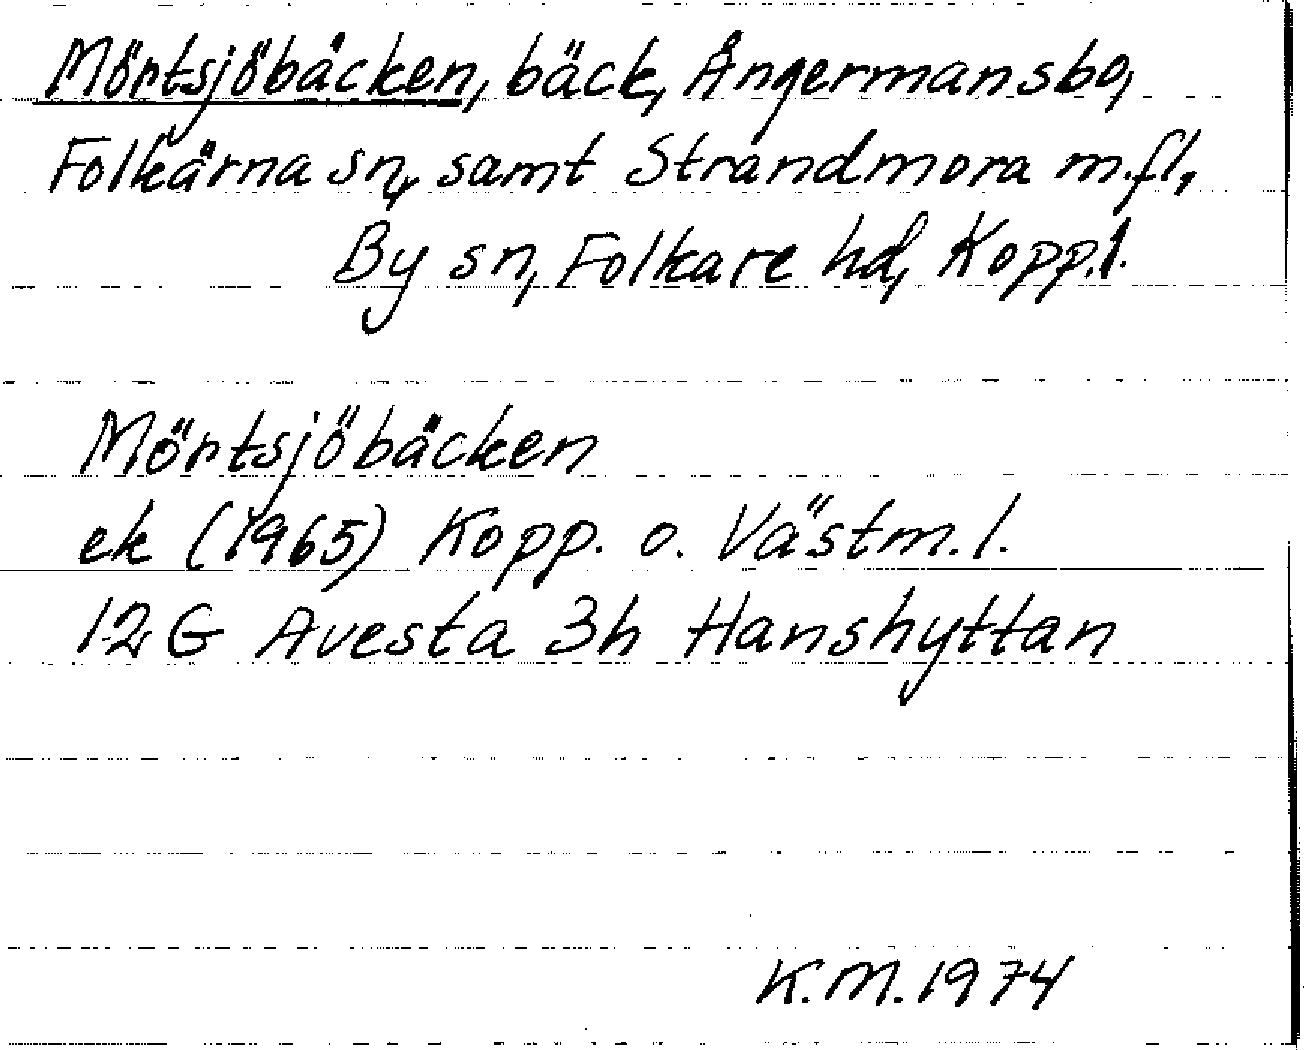 Mörtsjöbäcken, bäck, Ångermansbo,
Folkärna sn, samt Strandmora m.fl.,
By sn, Folkare hd, Kopp.l.
Mörtsjöbäcken
ek (1965) Kopp. o. Västm.l.
12 G Avesta 3h Hanshyttan
K.M. 1974